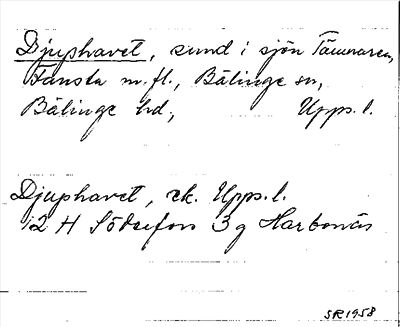 Djuphavet, sund i sjön Tämnaren,
Tansta m.fl., Bälinge sn,
Bälinge hd, Upps. l.
Djuphavet, ek. Upps. l.
12 H Söderfors 3 g Harbonäs
SR 1958